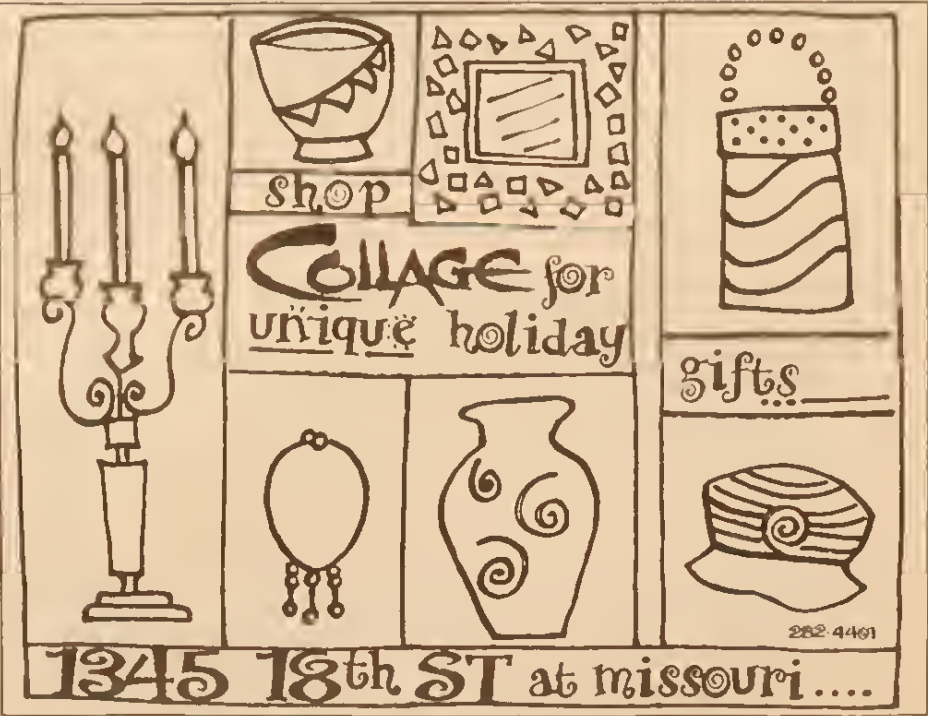 shop
COLLAGE for
unique holiday
gifts
282-4401
1345 18th ST at missouri....